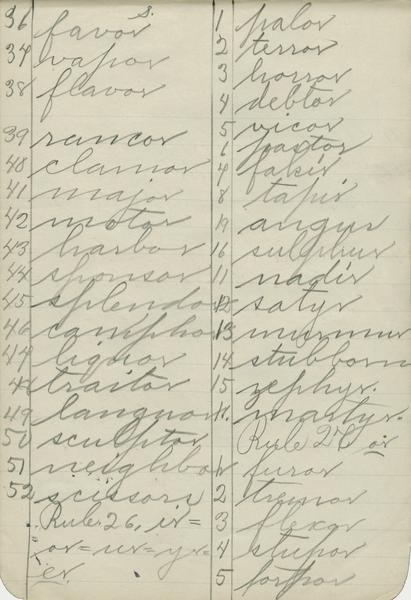 s.
36 favor
37 vapor
38 flavor
39 rancor
40 clamor
41 major
42 motor
43 harbor
44 sponsor
45 splendor
46 camphor
47 liquor
48 traitor
49 languor
50 sculptor
51 neighbor
52 scissors
Rule 26, ir=
or=ur=yr=
er
1 palor
2 terror
3 horror
4 debtor
5 vicor
6 pastor
7 fakir
8 tapir
9 angur
10 sulphur
11 nadir
12 satyr
13 murmur
14 stubborn
15 zephyr.
martyr.
Rule 26 or
1 furor
2 tremor
3 flexor
4 stupor
5 torpor